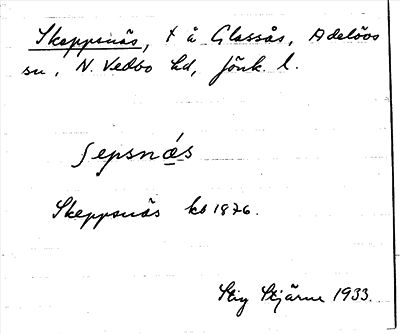 Skeppsnäs, t å Glassås, Adelövs
sn, N. Vedbo hd, Jönk. l.
ʃepsnæ̀s
Skeppsnäs kb 1876.
Stig Stjärne 1933.